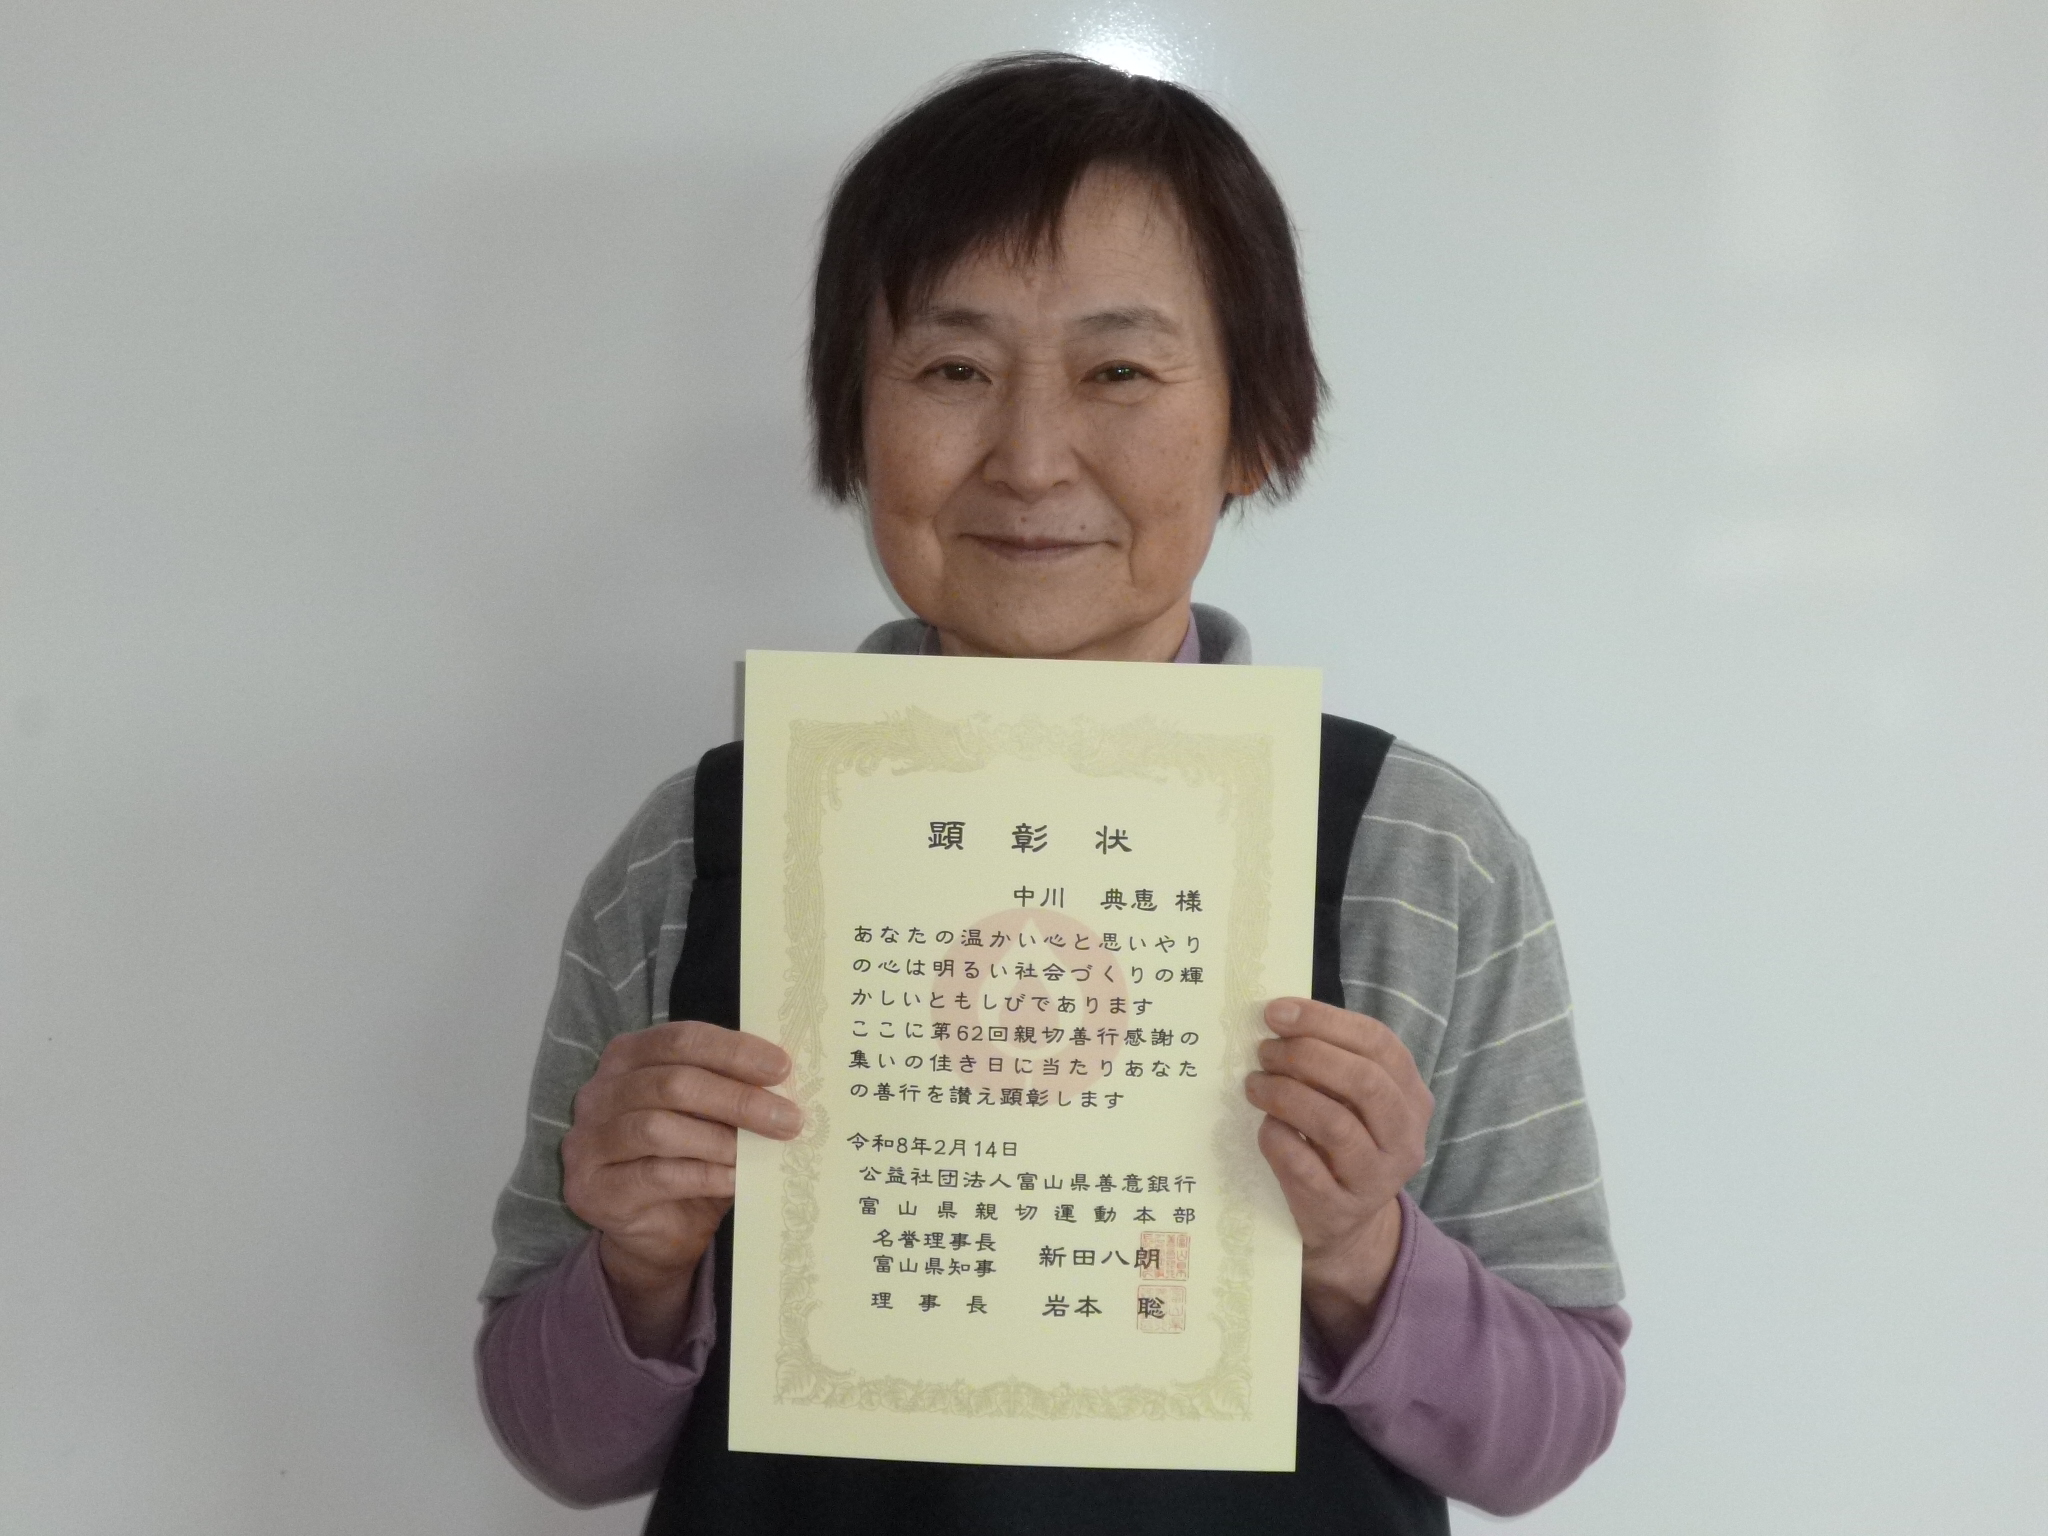 顕彰状
中川 典恵 様
あなたの温かい心と思いやり
の心は明るい社会づくりの輝
かしいともしびであります
ここに第62回親切善行感謝の
集いの佳き日に当たりあなた
の善行を讃え顕彰します
令和8年2月14日
公益社団法人富山県善意銀行
富山県親切運動本部
名誉理事長
富山県知事 新田八朗
理事長 岩本 聡